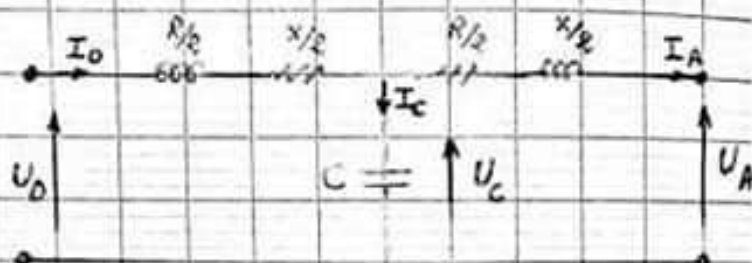 I₀ R/2 X/2 R/2 X/2 I_A
I_C
U₀ C U_C U_A